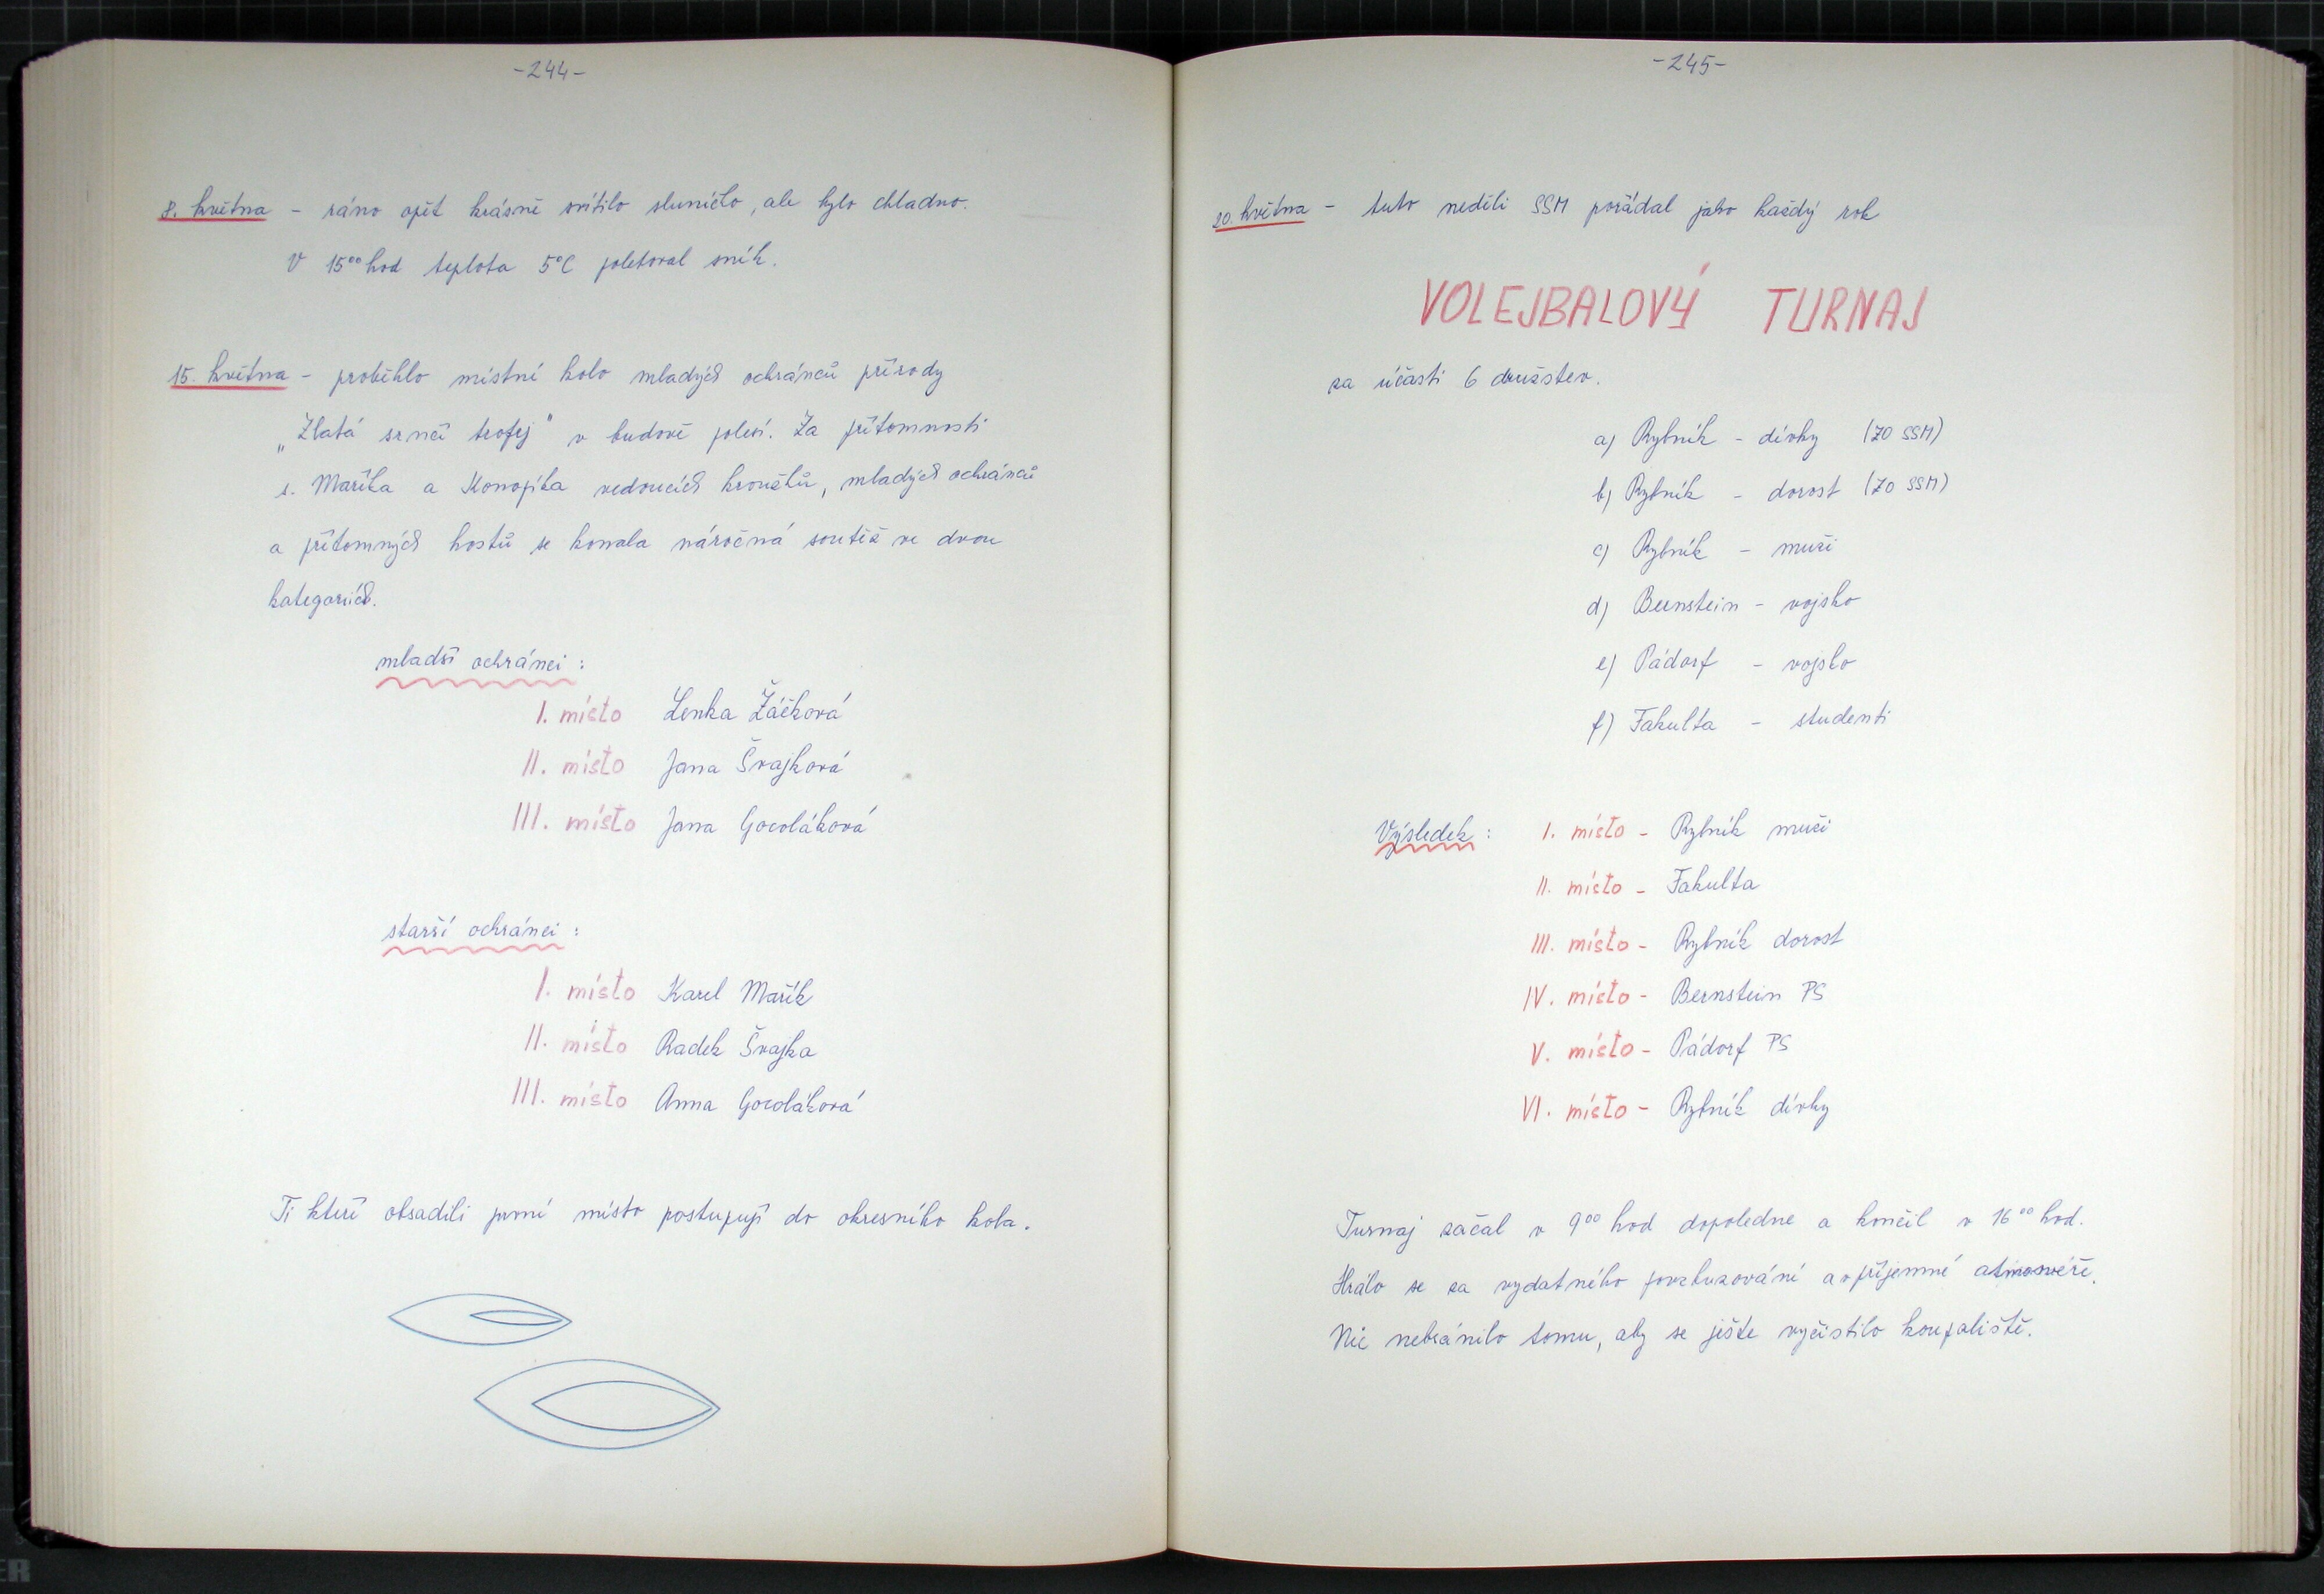 -244-
8. května - ráno opět krásně svítilo sluníčko, ale bylo chladno.
V 15⁰⁰ hod teplota 5°C poletoval sníh.
15. května - proběhlo místní kolo mladých ochránců přírody
„Zlatá srnčí trofej" v budově polesí. Za přítomnosti
s. Maříka a Konopíka vedoucích kroužků, mladých ochránců
a přítomných hostů se konala náročná soutěž ve dvou
kategoriích.
mladší ochránci :
I. místo Lenka Žáčková
II. místo Jana Švajková
III. místo Jana Gocoláková
starší ochránci :
I. místo Karel Mařík
II. místo Radek Švajka
III. místo Anna Gocoláková
Ti kteří obsadili první místo postupují do okresního kola.
-245-
20. května - tuto neděli SSM pořádal jako každý rok
VOLEJBALOVÝ TURNAJ
za účasti 6 družstev.
a) Rybník - dívky (ZO SSM)
b) Rybník - dorost (ZO SSM)
c) Rybník - muži
d) Bernstein - vojsko
e) Pádorf - vojsko
f) Fakulta - studenti
Výsledek : I. místo - Rybník muži
II. místo - Fakulta
III. místo - Rybník dorost
IV. místo - Bernstein PS
V. místo - Pádorf PS
VI. místo - Rybník dívky
Turnaj začal v 9⁰⁰ hod dopoledne a končil v 16⁰⁰ hod.
Hrálo se za vydatného povzbuzování a v příjemné
Nic nebránilo tomu, aby se ješte vyčistilo koupaliště.